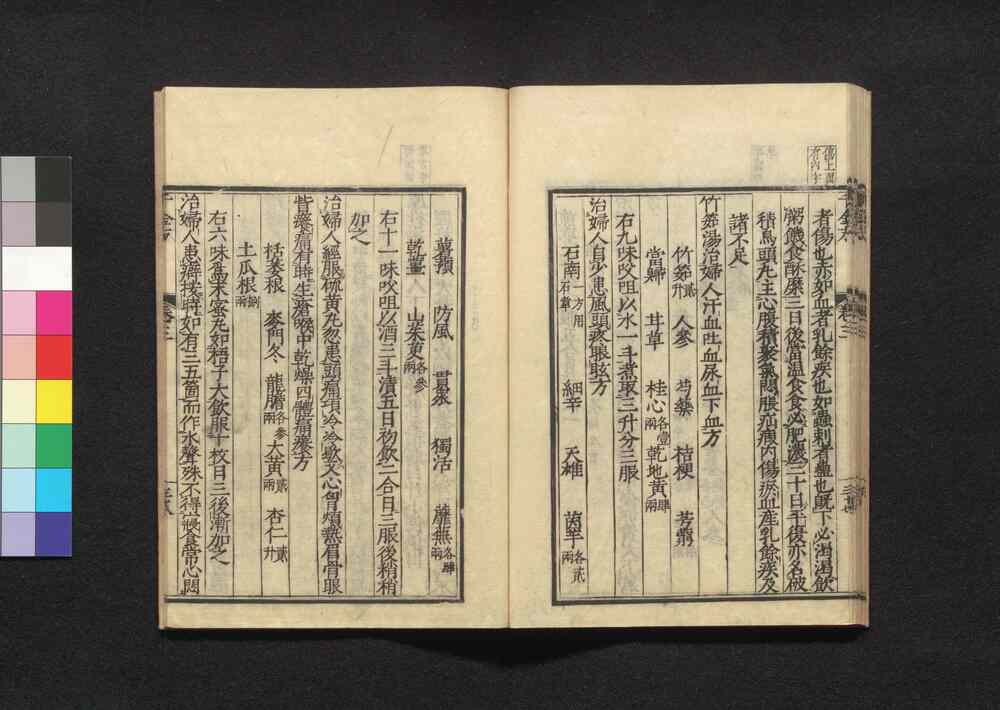 者傷也亦如血者乳餘疾也如蟲刺者蠱也既下必渴渴飲
粥饑食酥糜三日後當溫食食必肥濃三十日平復亦名破
積烏頭丸主心腹積聚氣悶脹疝瘕內傷瘀血產乳餘疾及
諸不足
竹筎湯治婦人汗血吐血尿血下血方
竹筎貳升 人參 芎藭 桔梗 芳藭
當歸 甘草 桂心各壹兩 乾地黃肆兩
右九味㕮咀以水一斗煮取三升分三服
治婦人自少患風頭疼眼眩方
石南一方用石韋 細辛 天雄 茵芋各貳兩
薯預 防風 貫衆 獨活 蘼蕪各肆兩
乾薑 山茱萸各參兩
右十一味㕮咀以酒三斗漬五日初飲二合日三服後稍稍
加之
治婦人經服硫黃丸忽患頭痛項冷冷歇又心胷煩熱眉骨眼
眥癢痛有時生瘡喉中乾燥四體痛癢方
栝蔞根 麥門冬 龍膽各參兩 大黃貳兩 杏仁貳升
土瓜根捌兩
右六味爲末蜜丸如梧子大飲服十枚日三後漸加之
治婦人患癖按時如有三五箇而作水聲殊不得寢食常心悶